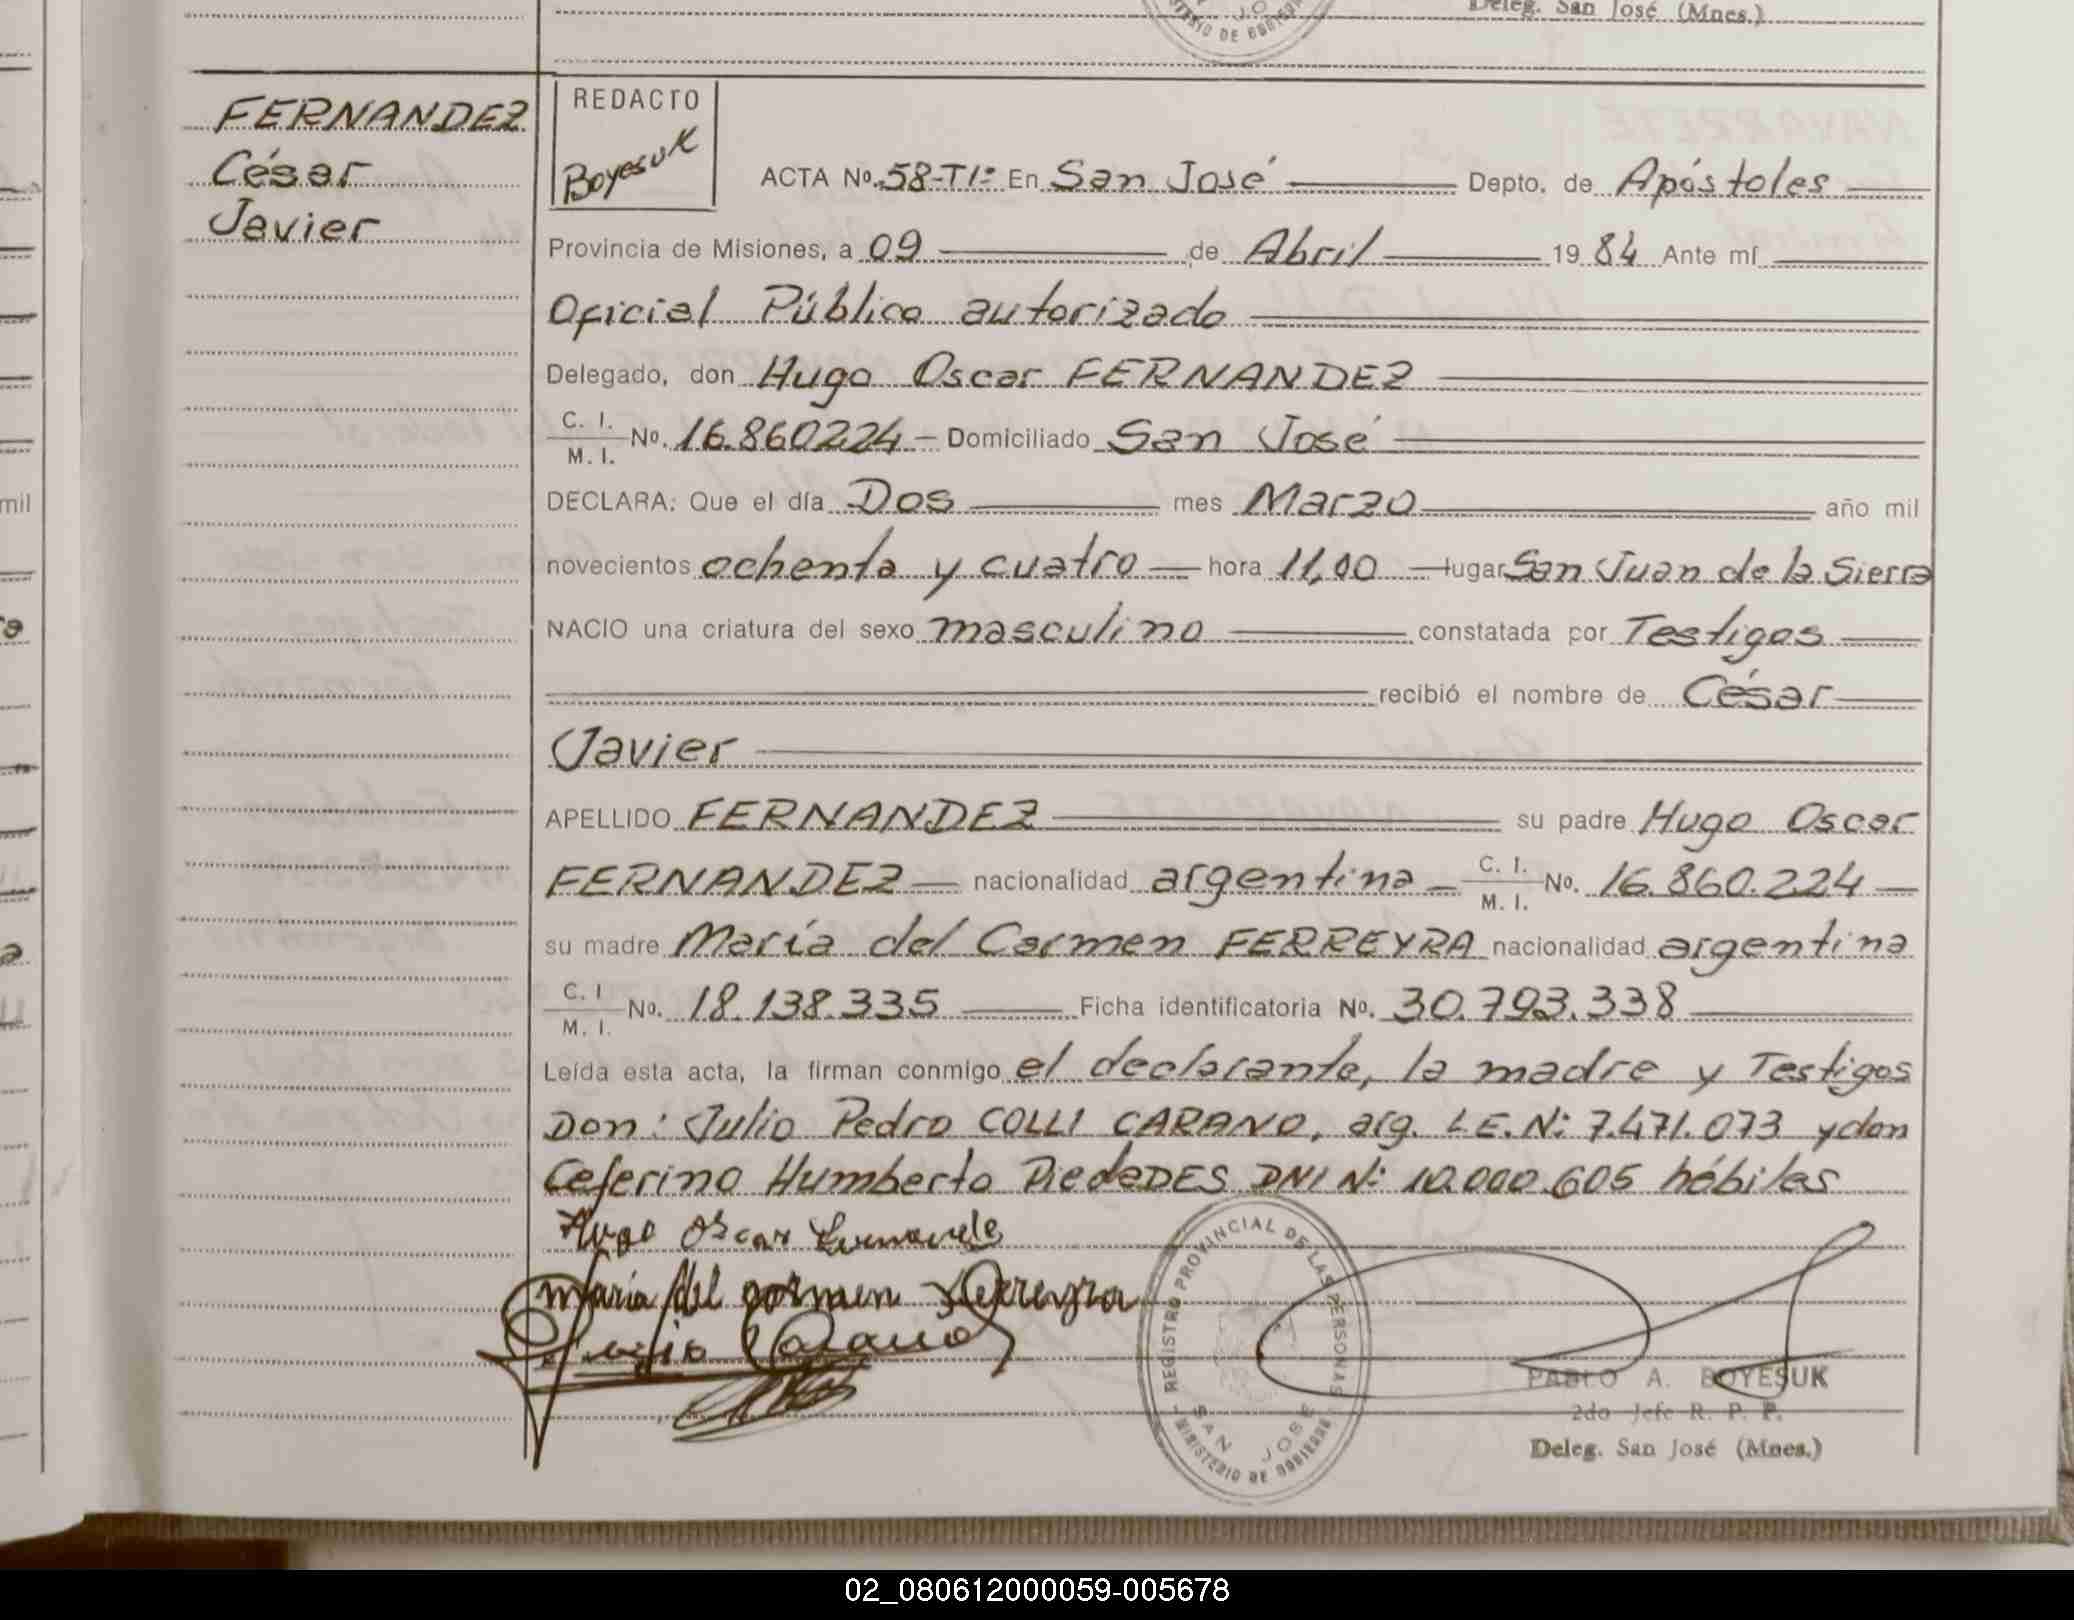 Deleg. San José (Mnes.)
FERNANDEZ
César
Javier
REDACTO
Boyesuk
ACTA No. 58-T1º En San José Depto. de Apóstoles
Provincia de Misiones, a 09 de Abril 1984 Ante mí
Oficial Público autorizado
Delegado, don Hugo Oscar FERNANDEZ
C. I.
M. I. No. 16.860224 - Domiciliado San José
DECLARA: Que el día Dos mes Marzo año mil
novecientos ochenta y cuatro hora 11,00 lugar San Juan de la Sierra
NACIO una criatura del sexo masculino constatada por Testigos
recibió el nombre de César
Javier
APELLIDO FERNANDEZ su padre Hugo Oscar
FERNANDEZ nacionalidad argentina C. I. M. I. No. 16.860.224
su madre María del Carmen FERREYRA nacionalidad argentina
C. I
M. I. No. 18.138.335 Ficha identificatoria No. 30.793.338
Leída esta acta, la firman conmigo el declarante, la madre y Testigos
Don: Julio Pedro COLLI CARANO, arg. L.E.Nº: 7.471.073 y don
Ceferino Humberto PiedaDES DNI Nº: 10.000.605 hábiles
Hugo Oscar
María del Carmen Ferreyra
Carano
REGISTRO PROVINCIAL DE LAS PERSONAS
SAN JOSE
MINISTERIO DE GOBIERNO
PABLO A. BOYESUK
2do Jefe R. P. P.
Deleg. San José (Mnes.)
02_080612000059-005678